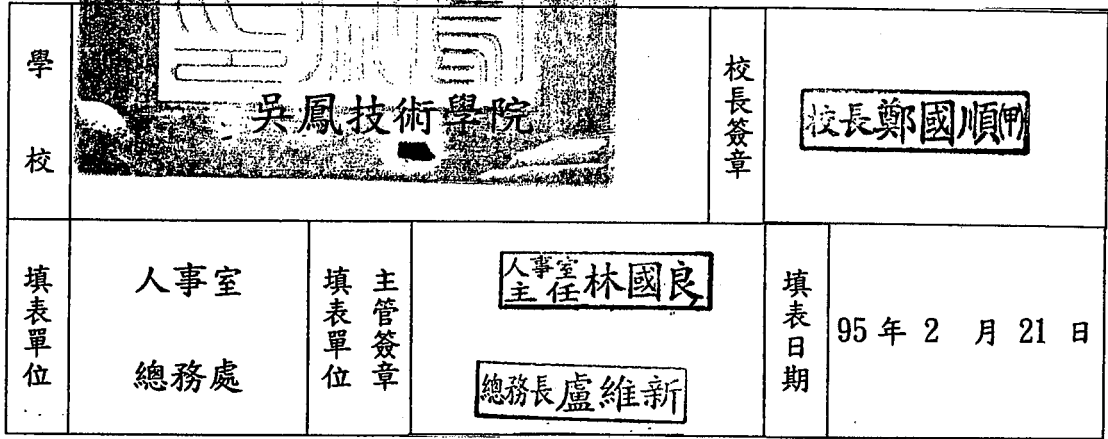 學校
吳鳳技術學院
校長簽章
校長鄭國順(甲)
填表單位
人事室
總務處
填表單位
主管簽章
人事室
主任林國良
總務長盧維新
填表日期
95 年 2 月 21 日